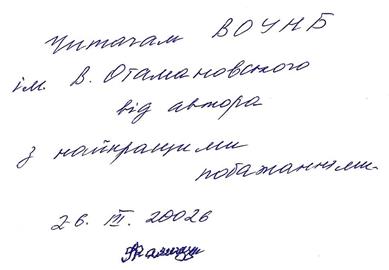 Читачам ВОУНБ
ім. В. Отамановського
від автора
з найкращими
побажаннями.
26. III. 2002б